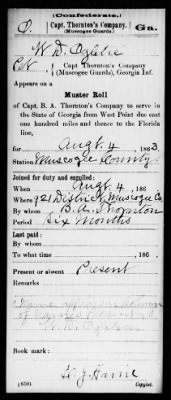 (Confederate.)
O. Capt. Thornton's Company. Ga.
(Muscogee Guards.)
W. D.
Pvt Capt Thornton's Company
(Muscogee Guards), Georgia Inf.
Appears on a
Muster Roll
of Capt. B. A. Thornton's Company to serve in
the State of Georgia from West Point due east
one hundred miles and thence to the Florida
line,
for Augt. 4, 1863.
Station Muscogee County.
Joined for duty and enrolled:
When Augt. 4, 186
Where 921 District, Muscogee Co
By whom B. A. Thornton
Period Six Months
Last paid:
By whom
To what time , 186 .
Present or absent Present
Remarks
of
Book mark:
(656) Copyist.